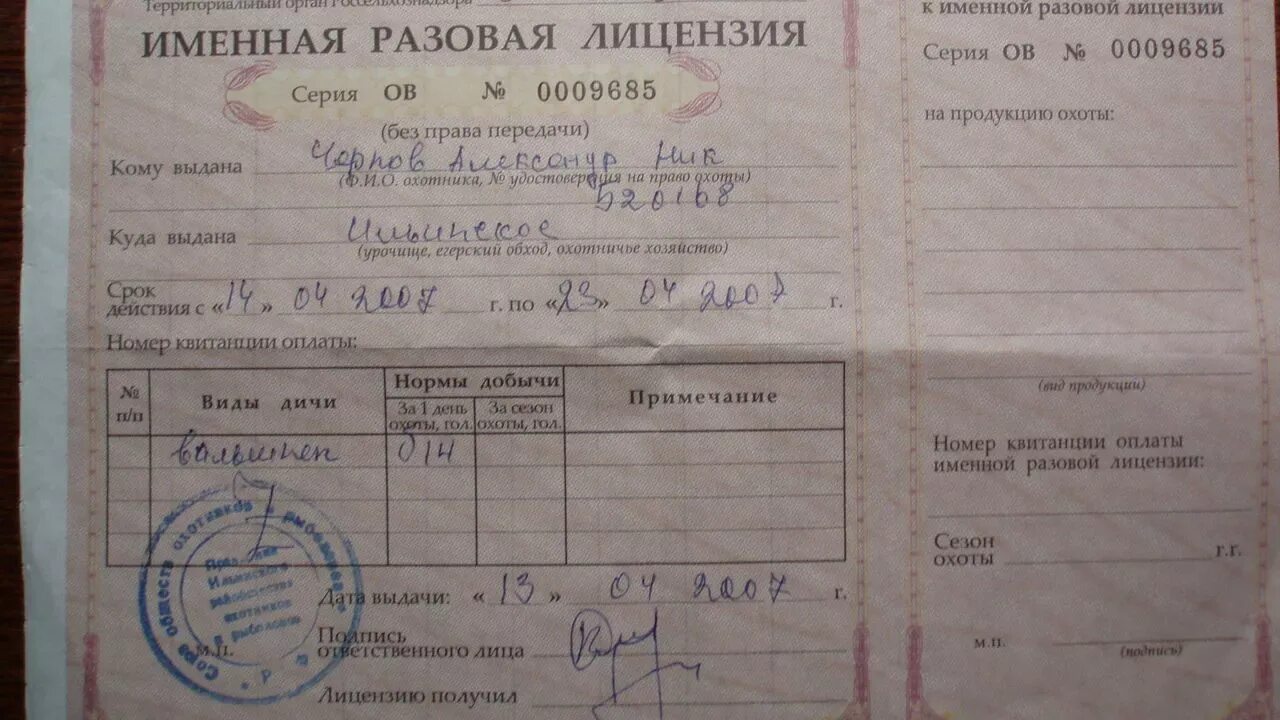 Территориальный орган Россельхознадзора
ИМЕННАЯ РАЗОВАЯ ЛИЦЕНЗИЯ
Серия ОВ № 0009685
(без права передачи)
Кому выдана Чорпов Александр Ник
(Ф.И.О. охотника, № удостоверения на право охоты)
520168
Куда выдана Ильинское
(урочище, егерский обход, охотничье хозяйство)
Срок
действия с «14» 04 2007 г. по «23» 04 2007 г.
Номер квитанции оплаты:
№ п/п Виды дичи Нормы добычи Примечание
За 1 день охоты, гол. За сезон охоты, гол.
вальшнеп
Дата выдачи: «13» 04 2007 г.
Подпись
ответственного лица
м.п.
Лицензию получил
Союз обществ охотников и рыболовов
Правление
Ильинского
райобщества
охотников
и рыболовов
к именной разовой лицензии
Серия ОВ № 0009685
на продукцию охоты:
(вид продукции)
Номер квитанции оплаты
именной разовой лицензии:
Сезон
охоты г.г.
м.п.
(подпись)